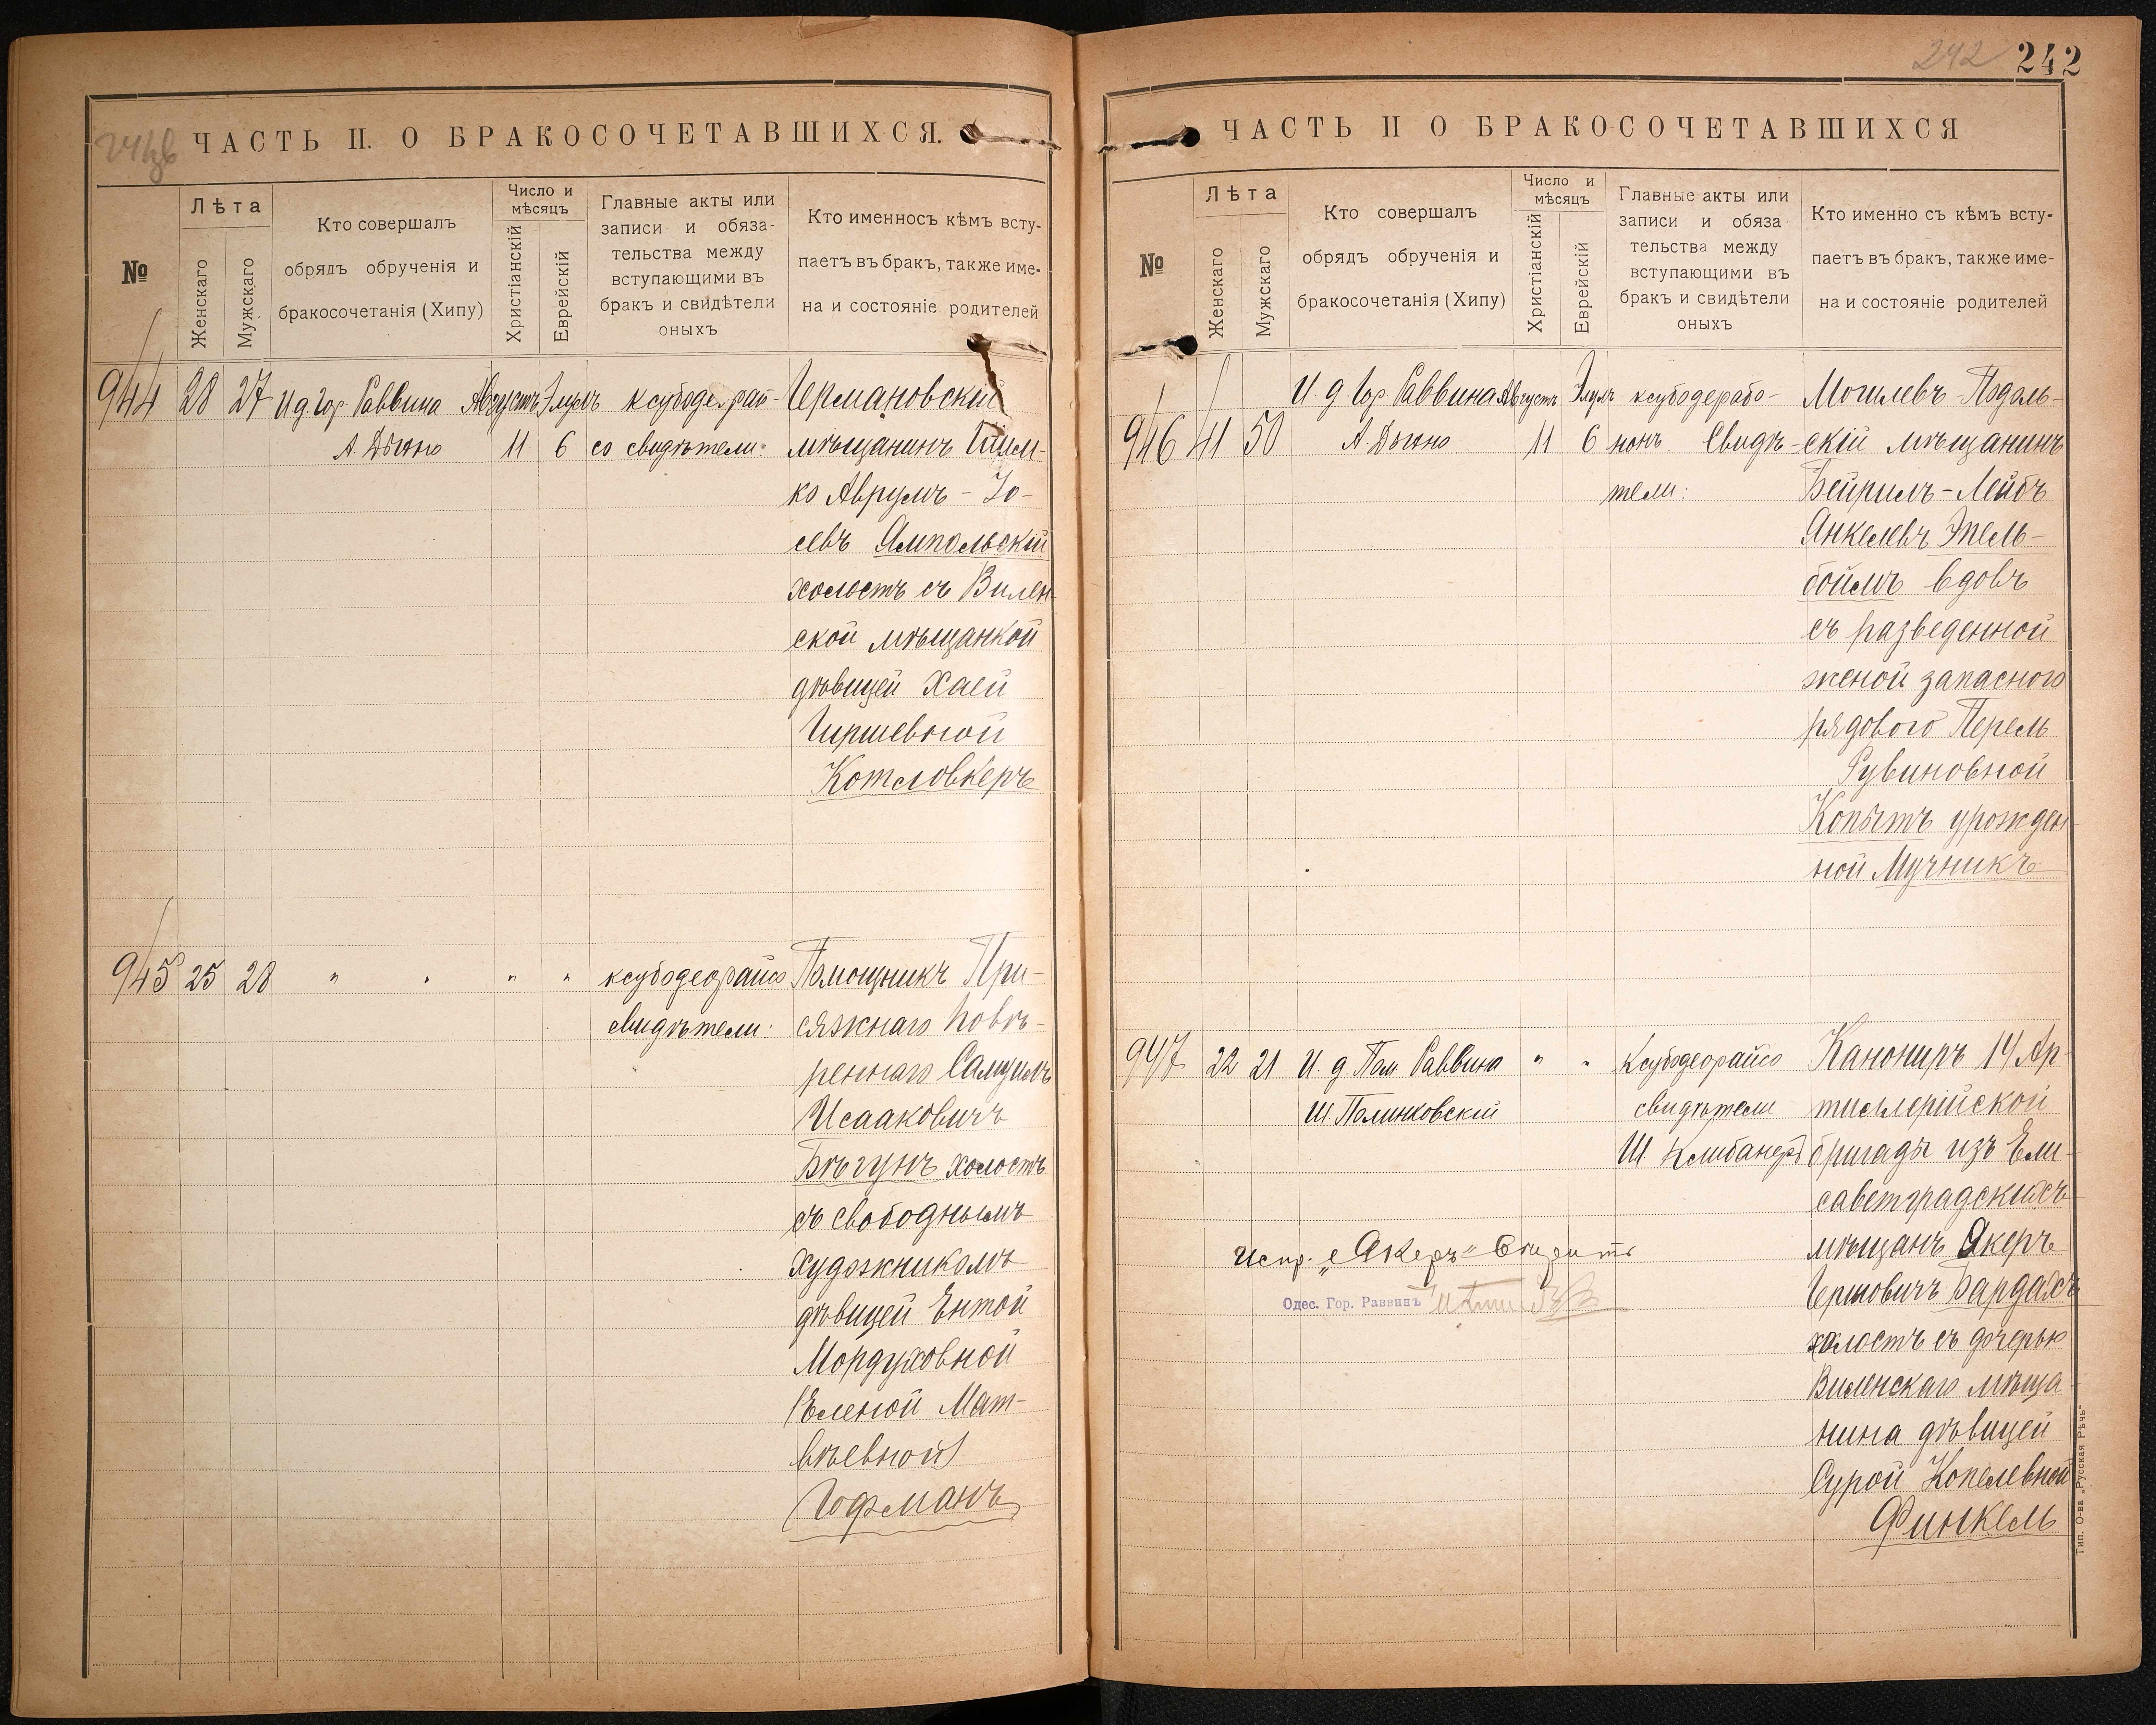 241об
ЧАСТЬ II. О БРАКОСОЧЕТАВШИХСЯ.
№
Лѣта
Женскаго
Мужскаго
Кто совершалъ
обрядъ обрученія и
бракосочетанія (Хипу)
Число и
мѣсяцъ
Христіанскій
Еврейскій
Главные акты или
записи и обяза-
тельства между
вступающими въ
бракъ и свидѣтели
оныхъ
Кто именносъ кѣмъ всту-
паетъ въ бракъ, также име-
на и состояніе родителей
944 28 27 И д Гор. Раввина Августъ Элулъ ксубодеорай- Чермановскій
11 6 со свидѣтели: мѣщанинъ Шлем-
ко Аврумъ-Іо-
севъ Ямпольскій
холостъ съ Вилен-
ской мѣщанкой
дѣвицей Хаей
Гиршевной
Котловкеръ
945 25 28 " " " " ксубодеорайсо Помощникъ При-
свидѣтели: сяжнаго Повѣ-
реннаго Самуилъ
Исааковичъ
Бѣгунъ холостъ
съ свободнымъ
художникомъ
дѣвицей Ентой
Мордуховной
(Еленой Мат-
вѣевной)
Гофманъ
242 242
ЧАСТЬ II О БРАКОСОЧЕТАВШИХСЯ
№
Лѣта
Женскаго
Мужскаго
Кто совершалъ
обрядъ обрученія и
бракосочетанія (Хипу)
Число и
мѣсяцъ
Христіанскій
Еврейскій
Главные акты или
записи и обяза
тельства между
вступающими въ
бракъ и свидѣтели
оныхъ
Кто именно съ кѣмъ всту-
паетъ въ бракъ, также име-
на и состояніе родителей
И д Гор. Раввина Августъ Элулъ ксубодерабо- Могилевъ-Подоль-
946 41 50 11 6 нонъ Свидѣ- скій мѣщанинъ
тели: Бейрилъ-Лейбъ
Анкелевъ Эпель-
боймъ вдовъ
съ разведенной
женой запаснаго
рядового Перель
Рувиновной
Копытъ урожден-
ной Мучникъ
947 22 21 И. д. Пом Раввина " " Ксубодеорайсо Канониръ 14 Ар-
Ш. Полинковскій свидѣтели тиллерійской
Ш бригады изъ Ели-
саветградскихъ
мѣщанъ Якеръ
Бардахъ
холостъ съ дочерью
Виленскаго мѣща-
нина дѣвицей
Сурой Копелевной
Финкель
Испр. „Якеръ"
Одес. Гор. Раввинъ
Тип. О-ва „Русская Рѣчь"